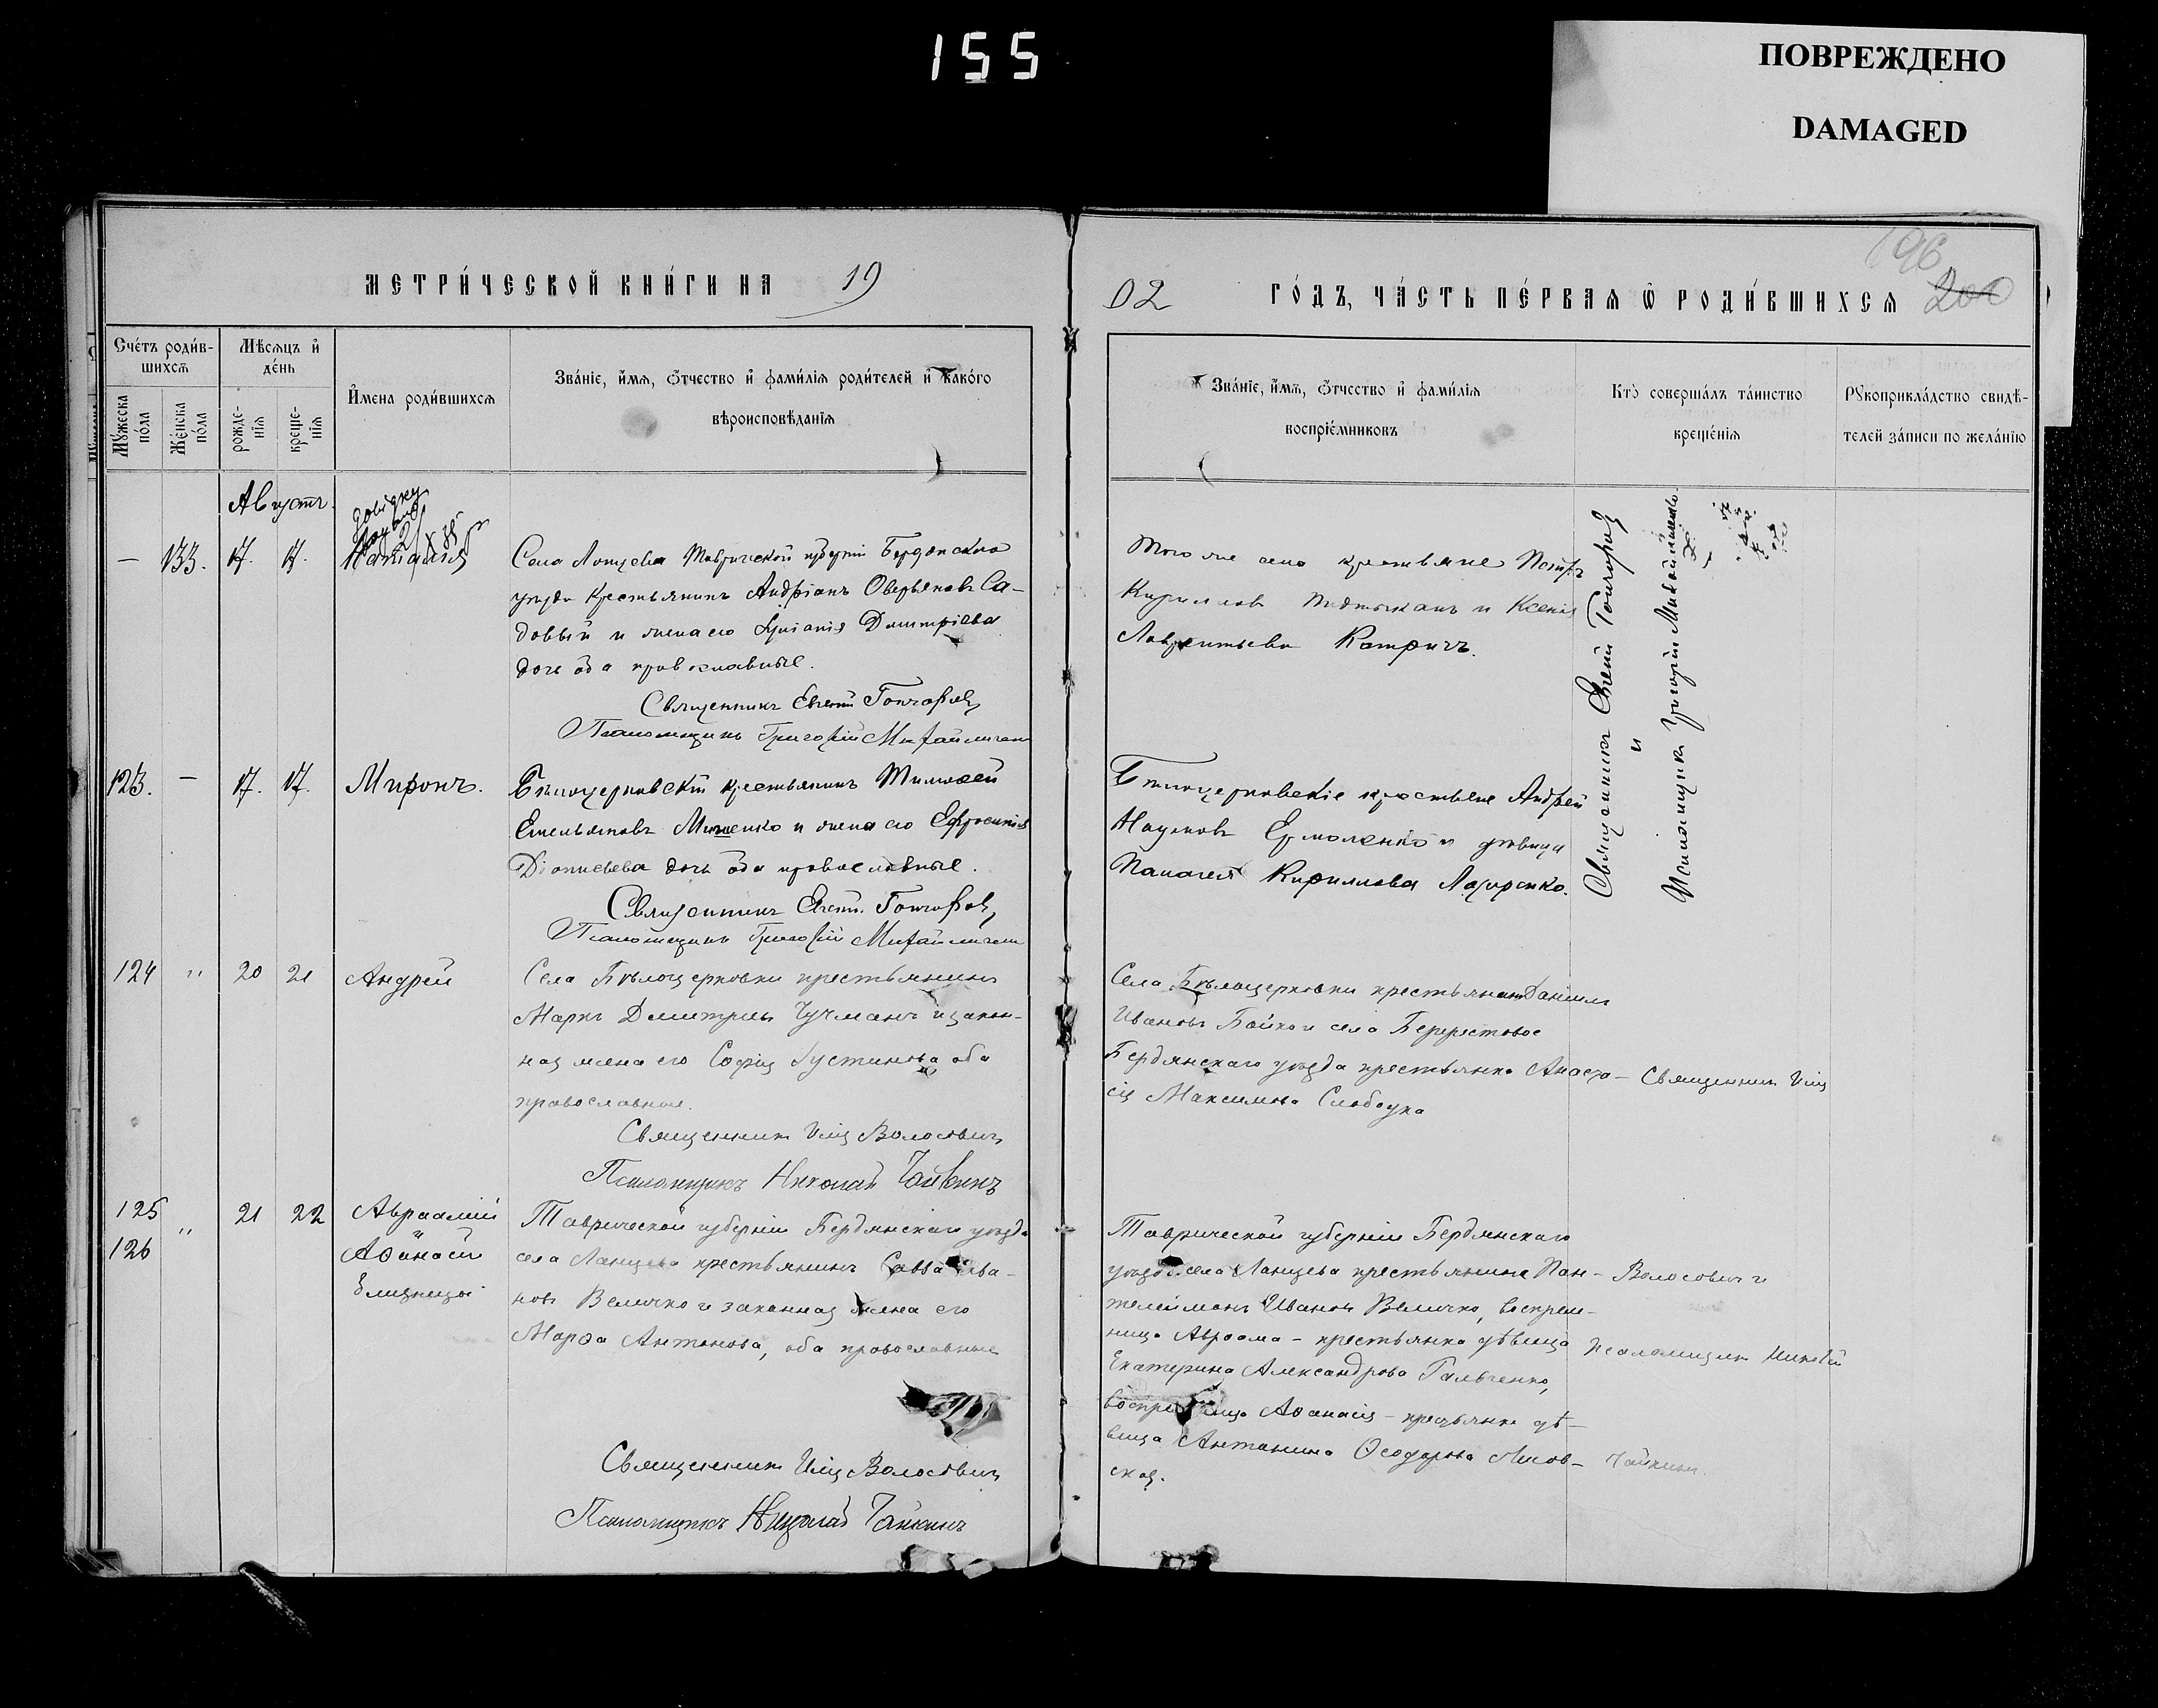 155
ПОВРЕЖДЕНО
DAMAGED
196
200
МЕТРИ́ЧЕСКОЙ КНИ́ГИ НА 19
02 ГО́ДЪ, ЧА́СТЬ ПЕ́РВАЯ Ѿ РОДИ́ВШИХСЯ
Сче́тъ роди́в-
шихсѧ
Мꙋ́жеска по́ла
Же́нска по́ла
Мѣ́сѧцъ и҆ де́нь
рожде-
нїѧ
креще-
нїѧ
И҆мена роди́вшихсѧ
Зва́нїе, и҆́мѧ, ѻ҆́тчество и҆ фами́лїѧ роди́телей и҆ како́го
вѣроисповѣ́данїѧ
Зва́нїе, и҆́мѧ, ѻ҆́тчество и҆ фами́лїѧ
воспрїе́мниковъ
Кто̀ соверша́лъ та́инство
креще́нїѧ
Рꙋкоприкла́дство свидѣ́-
телей за́писи по жела́нїю
Августъ.
— 133. 17. 17.
Села Таврической губерніи Бердянскаго
уѣзда крестьянинъ Андріанъ Са-
довый и жена его Дмитріева
оба православные.
Священникъ Евгеній Гончаровъ
Псаломщикъ Григорій
Того же села крестьяне Петръ
Кирилловъ и Ксенія
Лаврентьева Катричъ.
Священникъ Евгеній Гончаровъ
и
Псаломщикъ Григорій
123. — 17. 17. Миронъ.
Бѣлоцерковскій крестьянинъ Тимофей
Емельяновъ и жена его Ефросинія
Діонисьева дочь оба православные.
Священникъ Евгеній Гончаровъ,
Псаломщикъ Григорій
Бѣлоцерковскіе крестьяне Андрей
Наумовъ Ермоленко и дѣвица
Пелагея Кириллова Лазоренко.
124 " 20 21 Андрей
Села Бѣлоцерковки крестьянинъ
Маркъ Дмитріевъ Чучманъ и закон-
ная жена его Софія Іустинова оба
православные.
Священникъ Илія Волосовичъ
Псаломщикъ Николай Чайкинъ
Села Бѣлоцерковки крестьянинъ Даніилъ
Ивановъ Бойко и села Берестовое
Бердянскаго уѣзда крестьянка Анаста-
сія Максимова Слободка
Священникъ Илія
125 " 21 22 Авраамій
126 Аѳанасій
близнецы
Таврической губерніи Бердянскаго уѣзда
села Ланцева крестьянинъ Савва Ива-
новъ Величко и законная жена его
Марѳа Антонова, оба православные
Священникъ Илія Волосовичъ
Псаломщикъ Николай Чайкинъ
Таврической губерніи Бердянскаго
уѣзда села Ланцева крестьянинъ Пан-
телеймонъ Ивановъ Величко, воспрем-
ница Авраама - крестьянка дѣвица
Екатерина Александрова Гальченко,
Аѳанасія - крестьянка дѣ-
вица Антонина Ѳеодорова Лисов-
ская.
Волосовичъ и
псаломщикъ Николай
Чайкинъ.